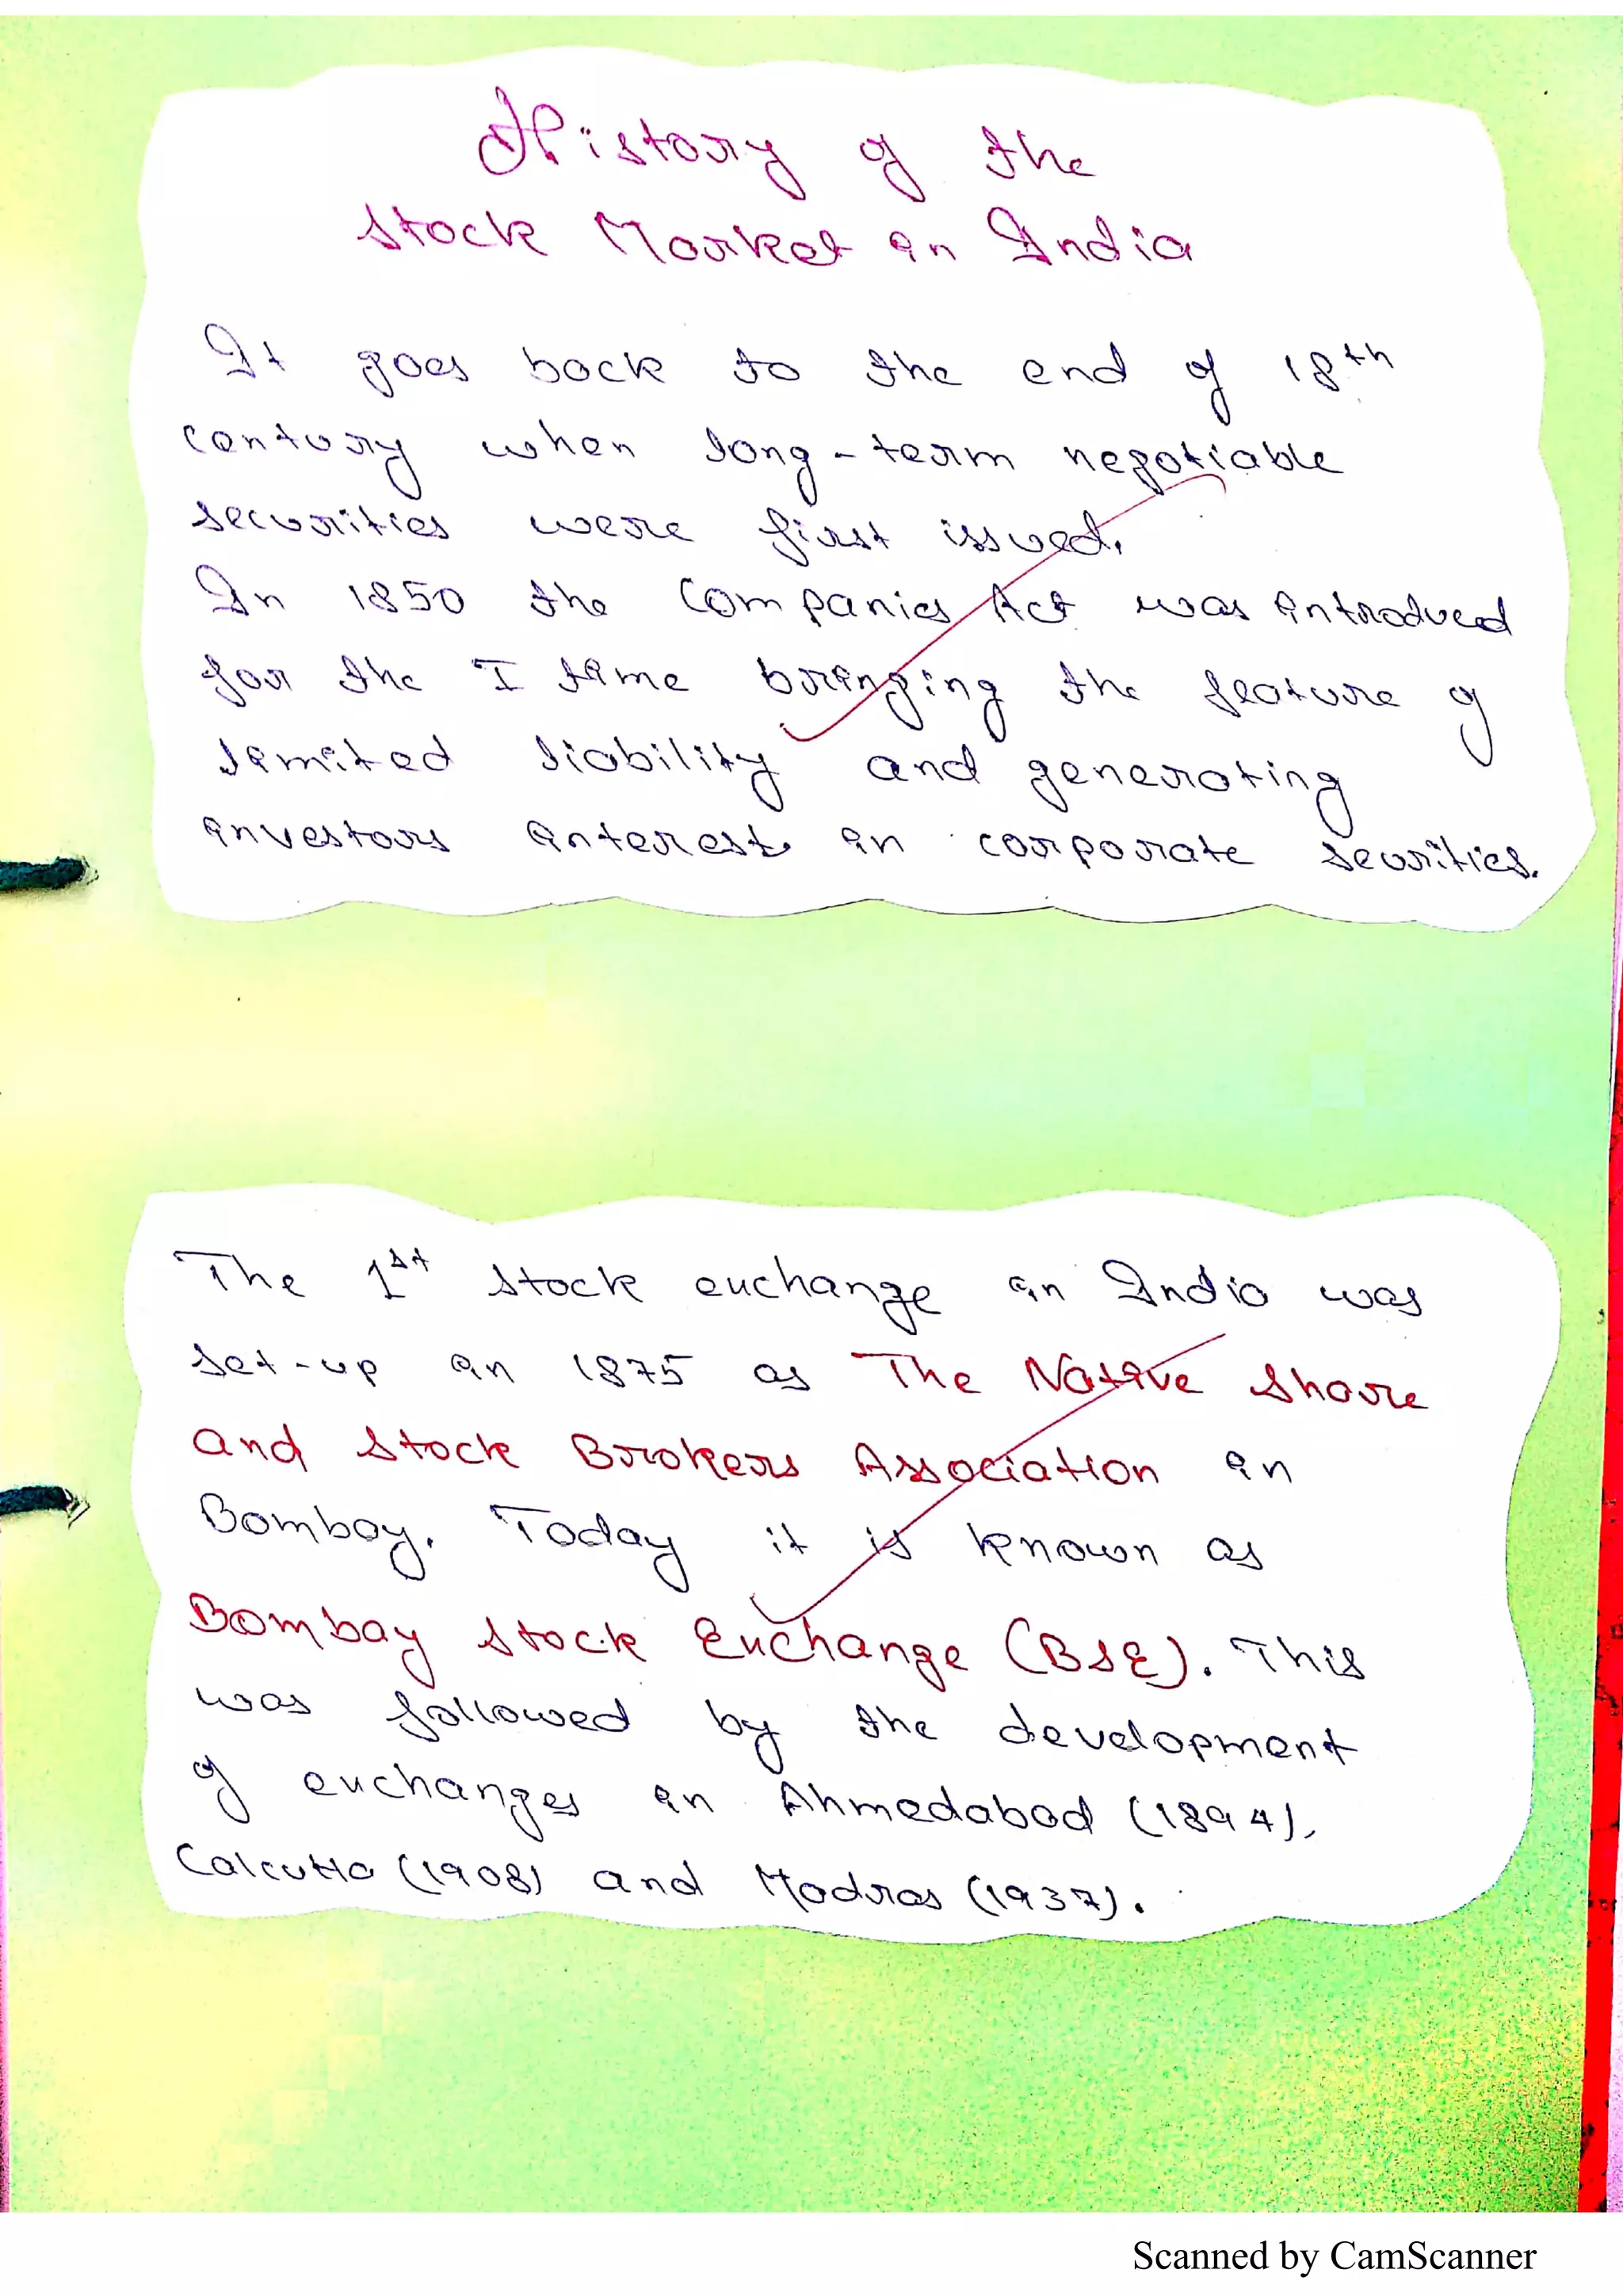 History of the
Stock Market in India
It goes back to the end of 18th
century when long-term negotiable
securities were first issued.
In 1850 the Companies Act was introduced
for the I time bringing the feature of
limited liability and generating
investors interest in corporate securities.
The 1st stock exchange in India was
set-up in 1875 as The Native Share
and Stock Brokers Association in
Bombay. Today it is known as
Bombay Stock Exchange (BSE). This
was followed by the development
of exchanges in Ahmedabad (1894),
Calcutta (1908) and Madras (1937).
Scanned by CamScanner